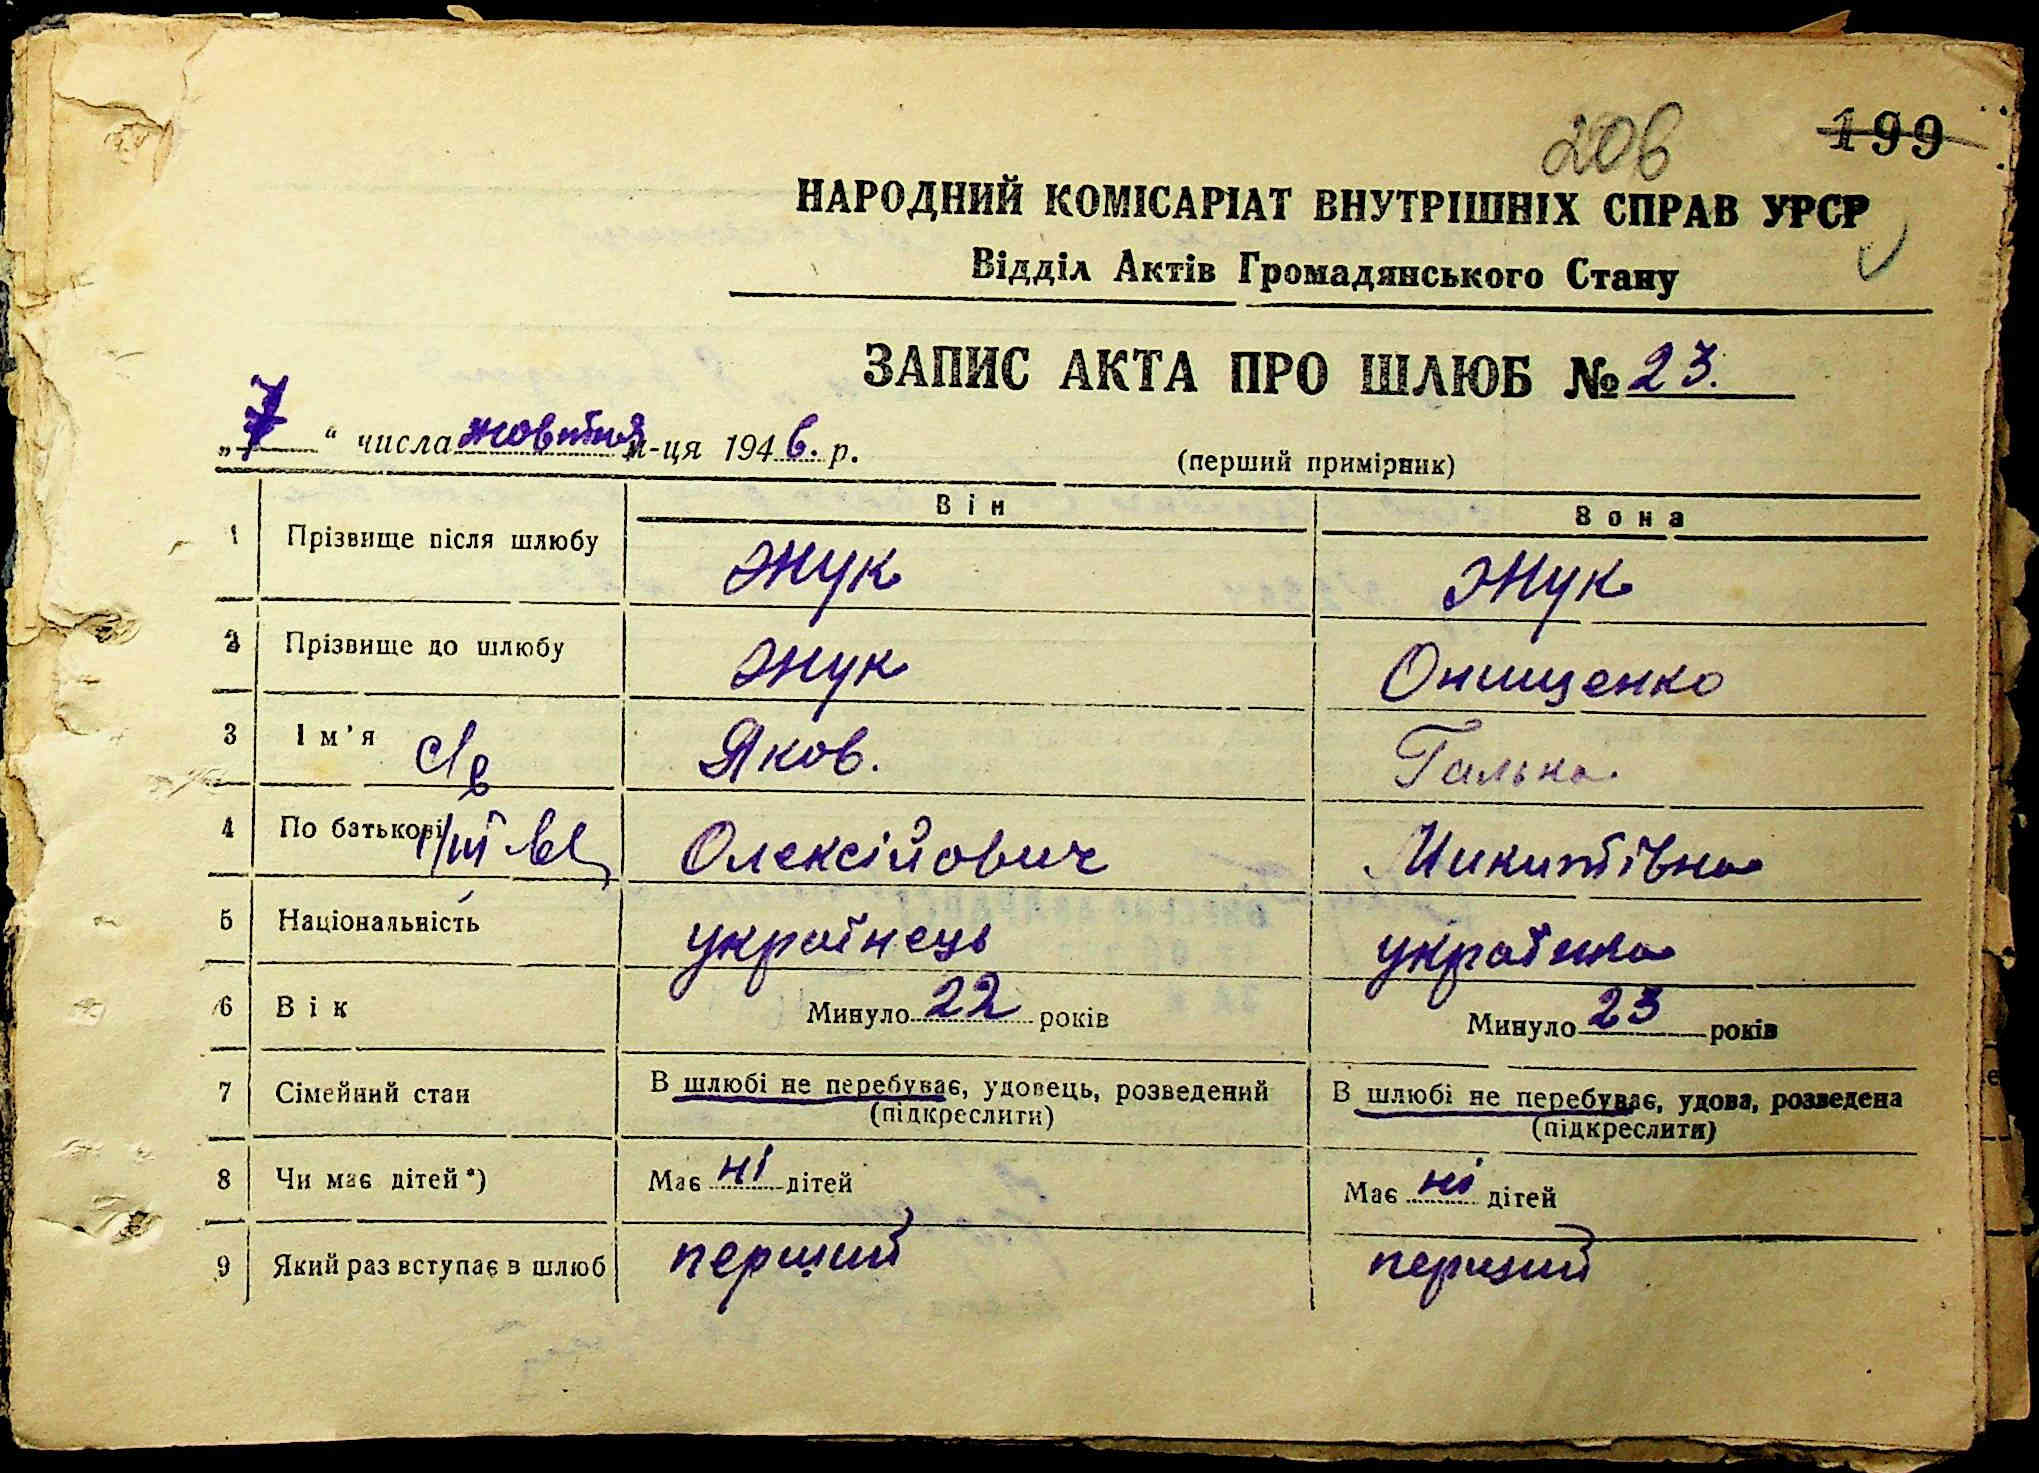 206 199
НАРОДНИЙ КОМІСАРІАТ ВНУТРІШНІХ СПРАВ УРСР
Відділ Актів Громадянського Стану
ЗАПИС АКТА ПРО ШЛЮБ № 23.
„7“ числа жовтня м-ця 1946. р.
(перший примірник)
Він Вона
1 Прізвище після шлюбу Жук Жук
2 Прізвище до шлюбу Жук Онищенко
3 Ім'я Яков. Галька
4 По батькові Олексійович Микитівна
5 Національність українець українка
6 Вік Минуло 22 років Минуло 23 років
7 Сімейний стан В шлюбі не перебуває, удовець, розведений В шлюбі не перебуває, удова, розведена
(підкреслити) (підкреслити)
8 Чи має дітей*) Має ні дітей Має ні дітей
9 Який раз вступає в шлюб перший перший